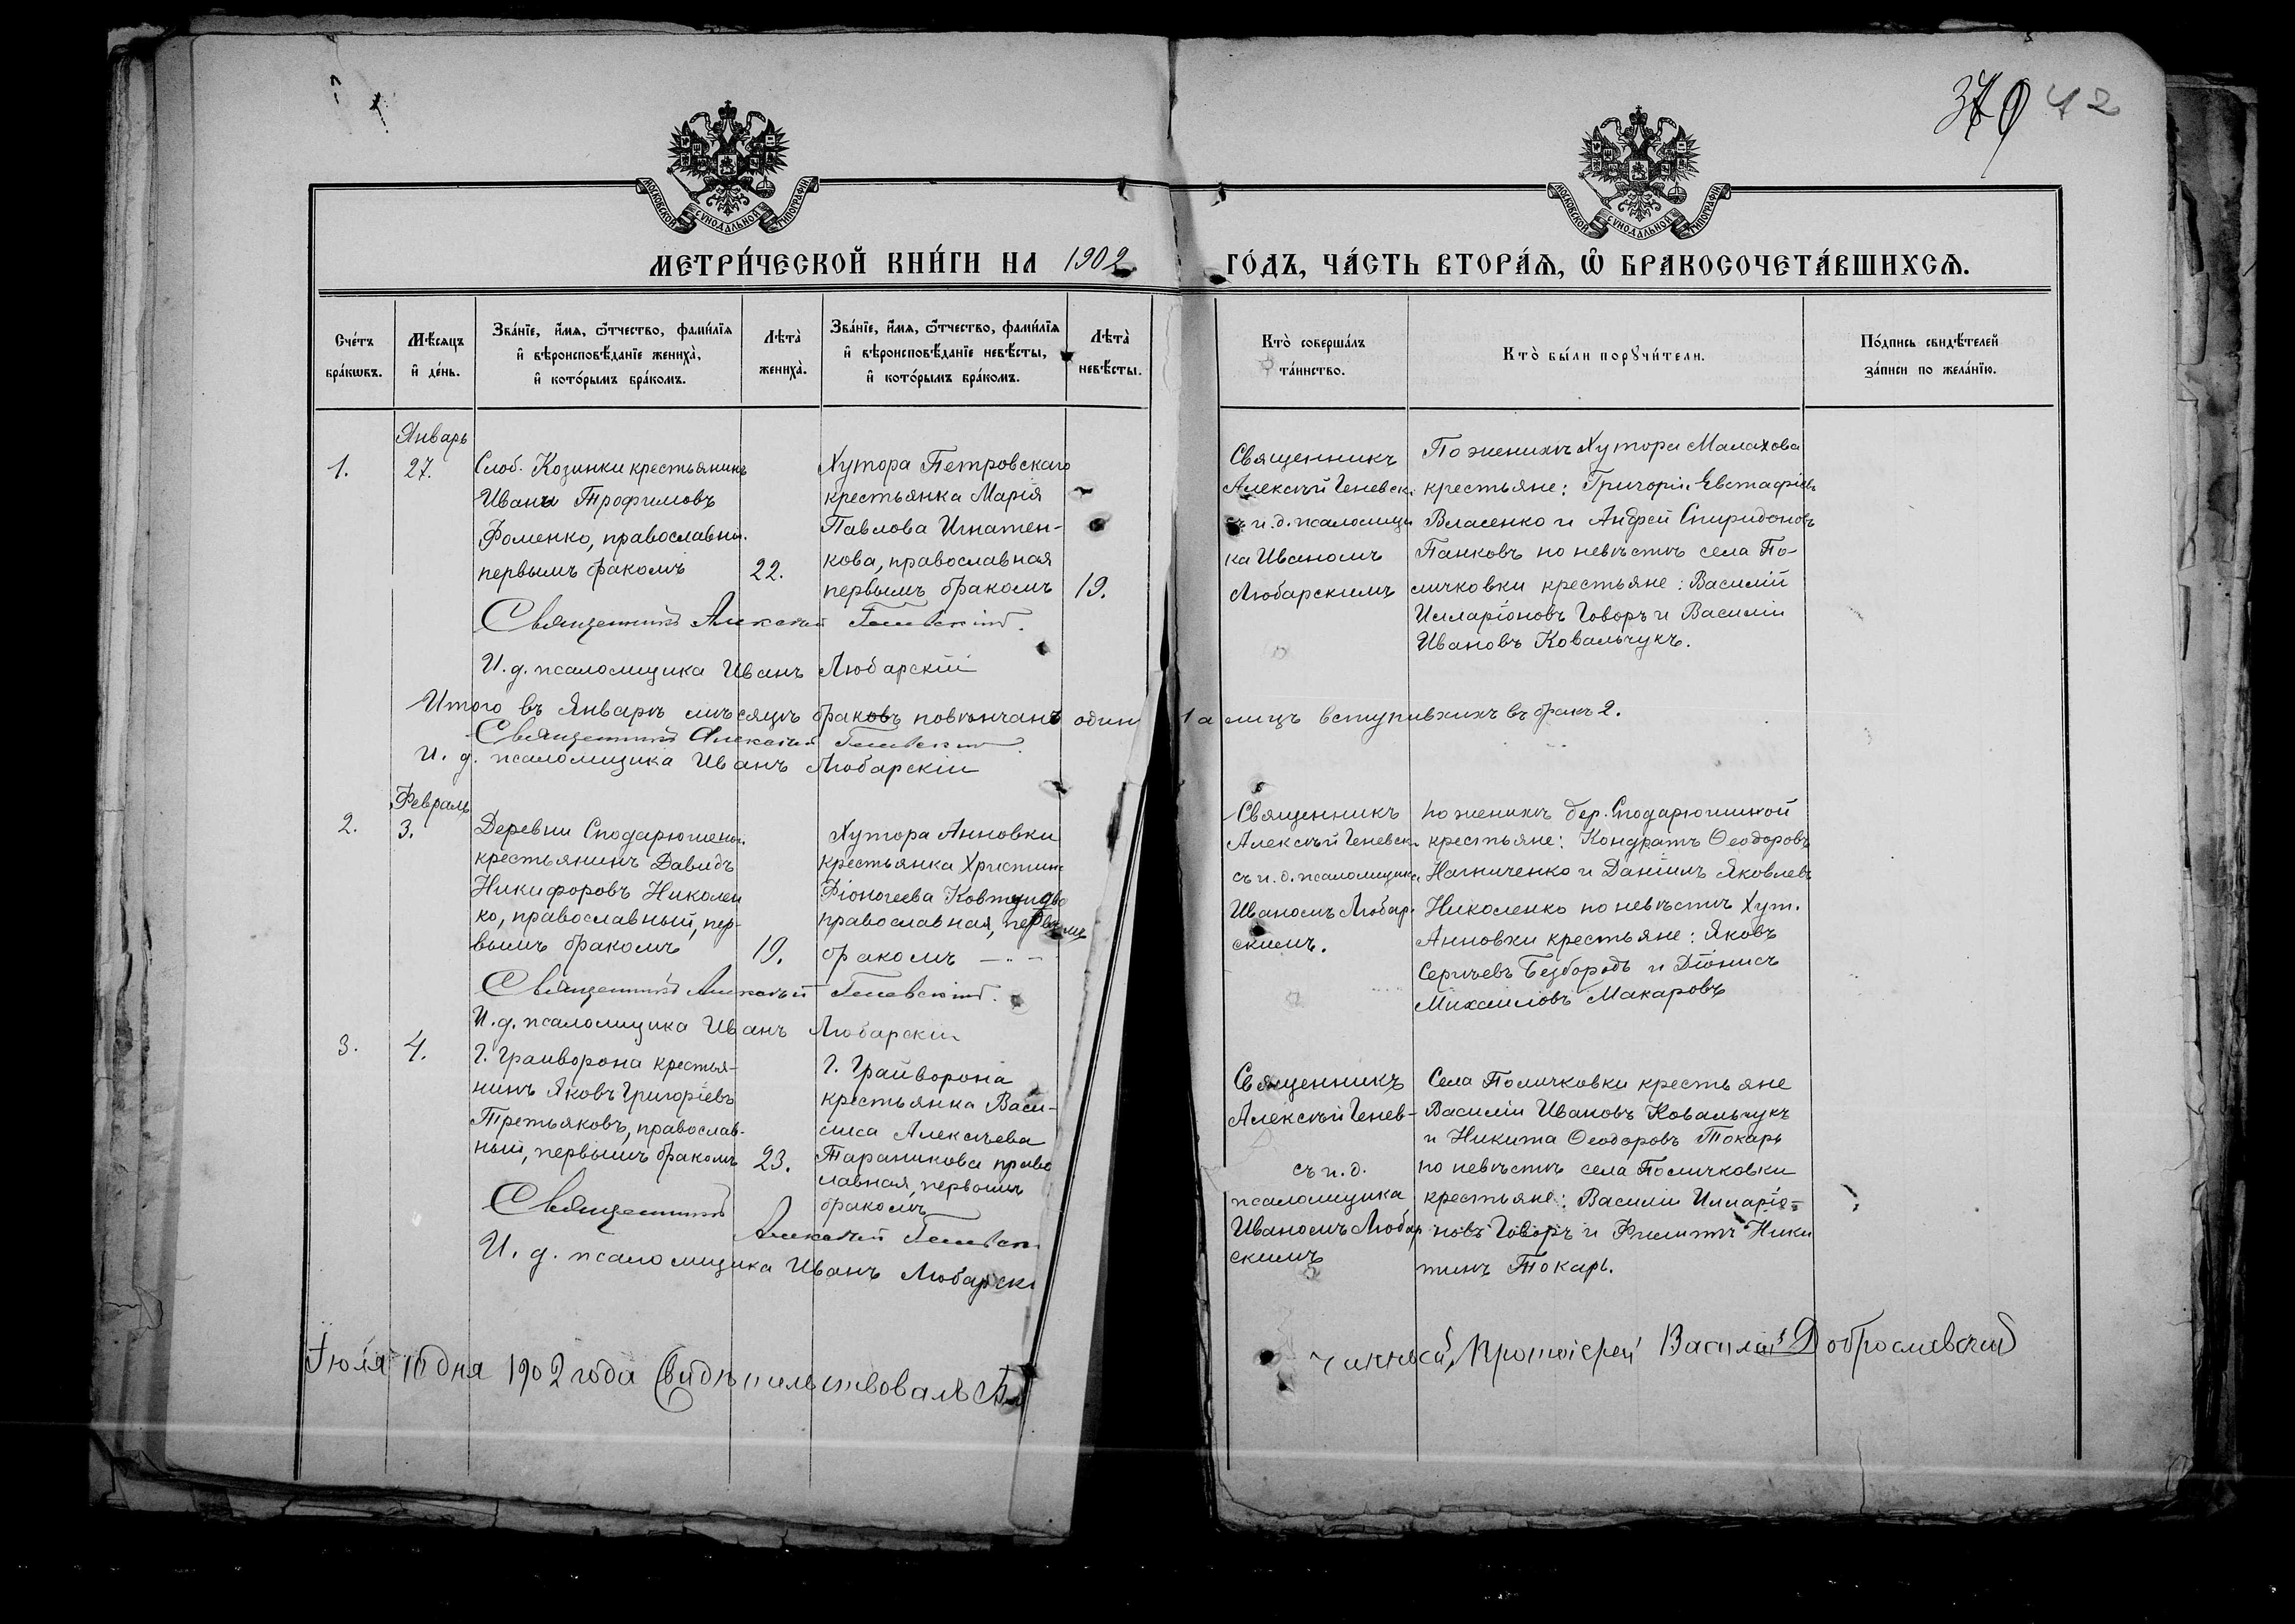 370 42
МОСКОВСКОЙ СѴНОДАЛЬНОЙ ТИПОГРАФІИ
МОСКОВСКОЙ СѴНОДАЛЬНОЙ ТИПОГРАФІИ
МЕТРИ́ЧЕСКОЙ КНИ́ГИ НА 1902 ГО́ДЪ, ЧА́СТЬ ВТОРА́Я, Ѽ БРАКОСОЧЕТА́ВШИХСЯ.
Сче́тъ
бра́кѡвъ.
Мѣ́сяцъ
и҆ де́нь.
Зва́нїе, и҆́мя, ѻ҆́тчество, фами́лїя
и҆ вѣроисповѣ́данїе жениха̀,
и҆ кото́рымъ бра́комъ.
Лѣта̀
жениха̀.
Зва́нїе, и҆́мя, ѻ҆́тчество, фами́лїя
и҆ вѣроисповѣ́данїе невѣ́сты,
и҆ кото́рымъ бра́комъ.
Лѣта̀
невѣ́сты.
Кто̀ соверша́лъ
та́инство.
Кто̀ бы́ли порꙋчи́тели.
По́дпись свидѣ́телей
за́писи по жела́нїю.
1.
Январь
27.
Слоб. Козинки крестьянинъ
Иванъ Трофимовъ
Фоменко, православный.
первымъ бракомъ
22.
Хутора Петровскаго
крестьянка Марія
Павлова Игнатен-
кова, православная
первымъ бракомъ
19.
Священникъ
Алексѣй Геневск.
съ и. д. псаломщи
ка Иваномъ
Любарскимъ
По женихѣ Хутора Малахова
крестьяне: Григорій Евстафіевъ
Власенко и Андрей Спиридоновъ
Панковъ по невѣстѣ села По-
личковки крестьяне: Василій
Илларіоновъ Говоръ и Василій
Ивановъ Ковальчукъ.
Священникъ Алексѣй Геневскій.
И. д. псаломщика Иванъ Любарскій
Итого въ Январѣ мѣсяцѣ браковъ повѣнчанъ одинъ 1 а лицъ вступившихъ въ бракъ 2.
Священникъ Алексѣй Геневскій
И. д. псаломщика Иванъ Любарскій
2.
Февраль
3.
Деревни
крестьянинъ Давидъ
Никифоровъ Николен
ко, православный, пер-
вымъ бракомъ
19.
Хутора Анновки
крестьянка Христина
православная, первымъ
бракомъ
Священникъ
Алексѣй Геневск.
съ и. д. псаломщика
Иваномъ Любар-
скимъ.
по женихѣ дер.
крестьяне: Кондратъ Ѳеодоровъ
Нагниченко и Даніилъ Яковлевъ
Николенко по невѣстѣ Хут.
Анновки крестьяне: Яковъ
Сергѣевъ Безбородъ и Діонисъ
Михаиловъ Макаровъ
Священникъ Алексѣй Геневскій.
И. д. псаломщика Иванъ Любарскій
3.
4.
Г. Грайворона крестья-
нинъ Яковъ Григоріевъ
Третьяковъ, православ-
ный, первымъ бракомъ
23.
Г. Грайворона
крестьянка Васи-
лиса Алексѣева
Тараникова право
славная, первымъ
бракомъ
Священникъ
Алексѣй Генев-
съ и. д.
псаломщика
Иваномъ Любар
скимъ
Села Поличковки крестьяне
Василій Ивановъ Ковальчукъ
и Никита Ѳеодоровъ Токарь
по невѣстѣ села Поличковки
крестьяне: Василій Илларіо-
новъ Говоръ и Филиппъ Ники
тинъ Токарь.
Священникъ
Алексѣй Геневск
И. д. псаломщика Иванъ Любарскі
Іюля 10 дня 1902 года Свидѣтельствовалъ Бла
чинный, Протоіерей Василій Доброславскій